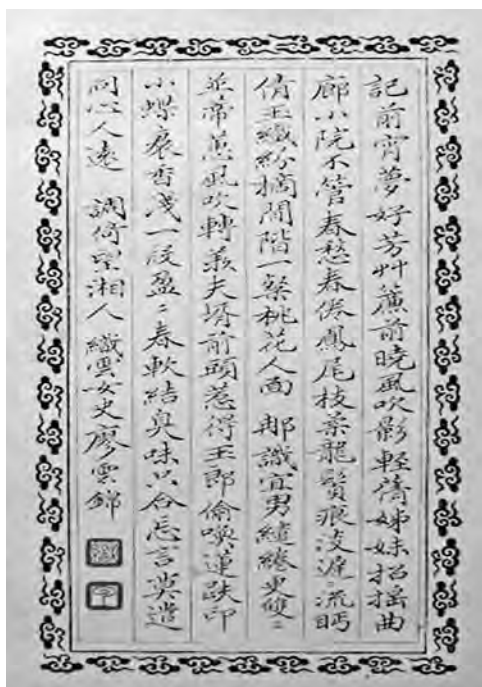 記前宵夢好芳艸簾前曉風吹影輕倩姊妹招搖曲
廊小院不管春愁春倦鳳尾枝柔龍鬚痕淺流眄
倩玉纖紛摘閒階一粲桃花人面 那識宜男繾綣更雙〻
並蒂蕙風吹轉羨夫壻前頭惹得玉郎偷喚蓮趺印
小蝶褭香淺一段盈〻春軟結臭味只合忘言莫遣
同心人遠 調倚望湘人 織雲女史廖雲錦